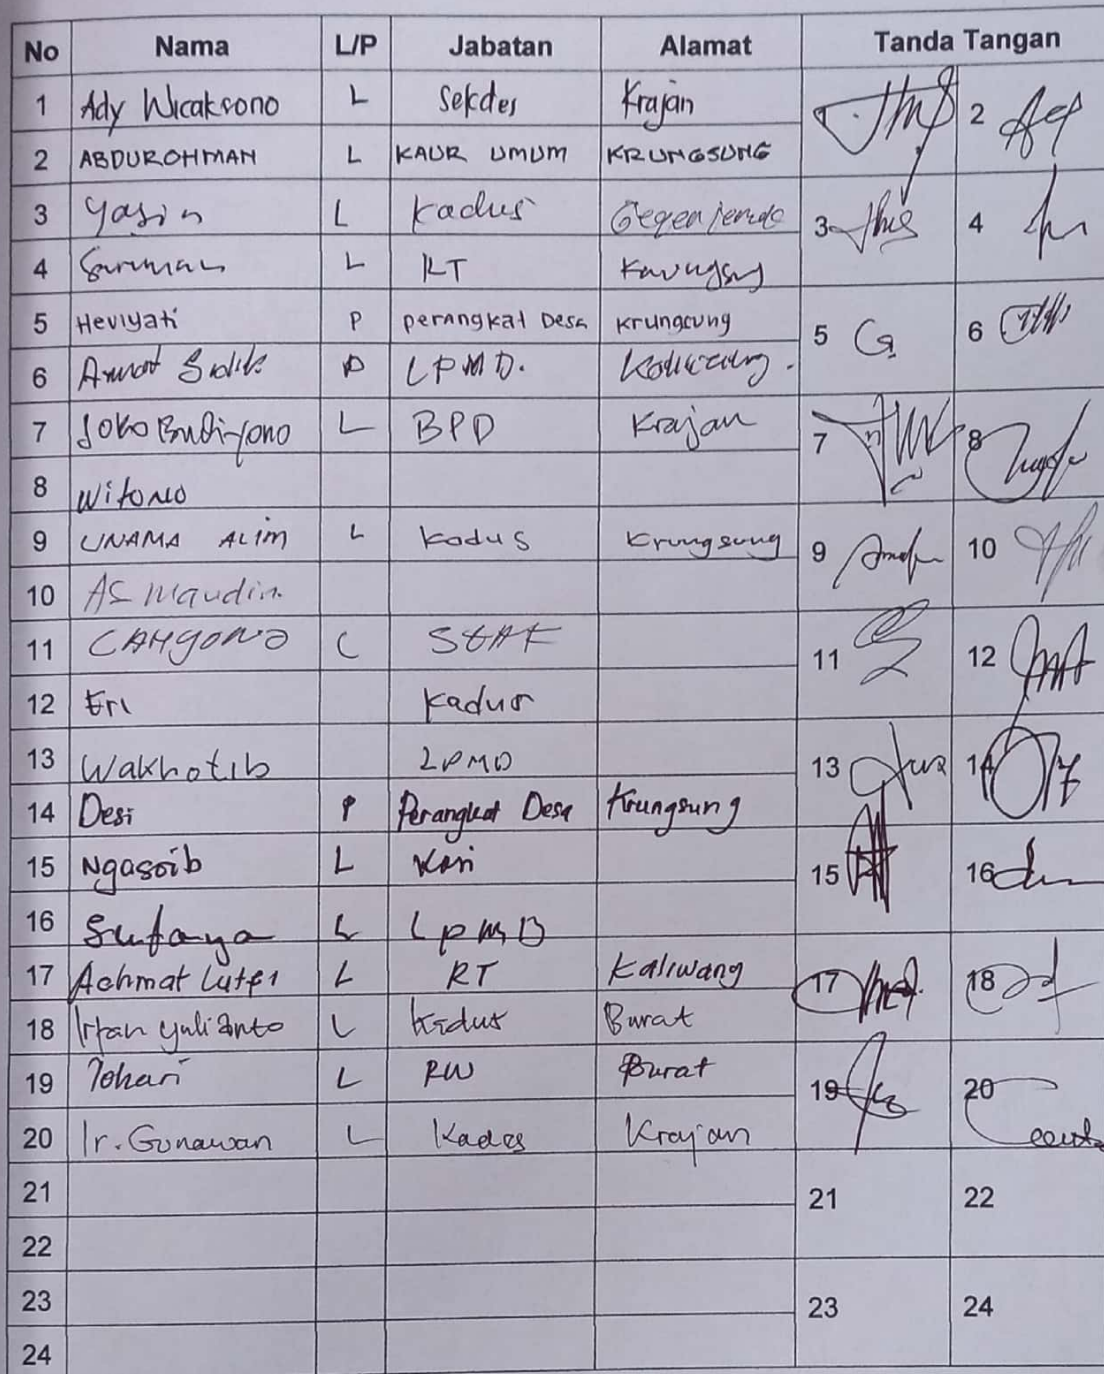 No Nama L/P Jabatan Alamat Tanda Tangan
1 Ady Wicaksono L Sekdes Krajan 1
2 ABDUROHMAN L KAUR UMUM KRUNGSUNG 2
3 Yasin L Kadus 3
4 L RT 4
5 Heviyati P perangkat Desa krungcung 5
6 P LPMD. 6
7 Joko Budiyono L BPD Krajan 7
8 Witono 8
9 UNAMA ALIM L Kadus Krungsung 9
10 AS Maudin 10
11 CAHYONO L STAF 11
12 Eri Kadus 12
13 Wakhotib LPMD 13
14 Desi P Perangkat Desa Krungsung 14
15 Ngasoib L 15
16 L LPMD 16
17 Achmat Lutfi L RT Kaliwang 17
18 Irfan Yulianto L Kadus Burat 18
19 Tohari L RW Burat 19
20 Ir. Gunawan L Kades Krajan 20
21 21
22 22
23 23
24 24